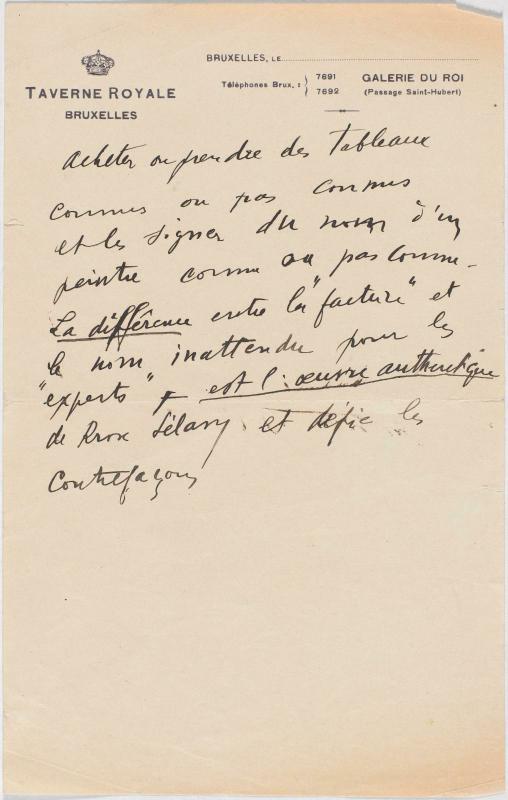 BRUXELLES, LE
TAVERNE ROYALE
BRUXELLES
Téléphones Brux. : 7691
7692
GALERIE DU ROI
(Passage Saint-Hubert)
Acheter ou prendre des Tableaux
connus ou pas connus
et les signer du nom d'un
peintre connu ou pas connu –
La différence entre la "facture" et
le nom inattendu pour les
"experts", – est l'œuvre authentique
de Rrose Sélavy et défie les
contrefaçons